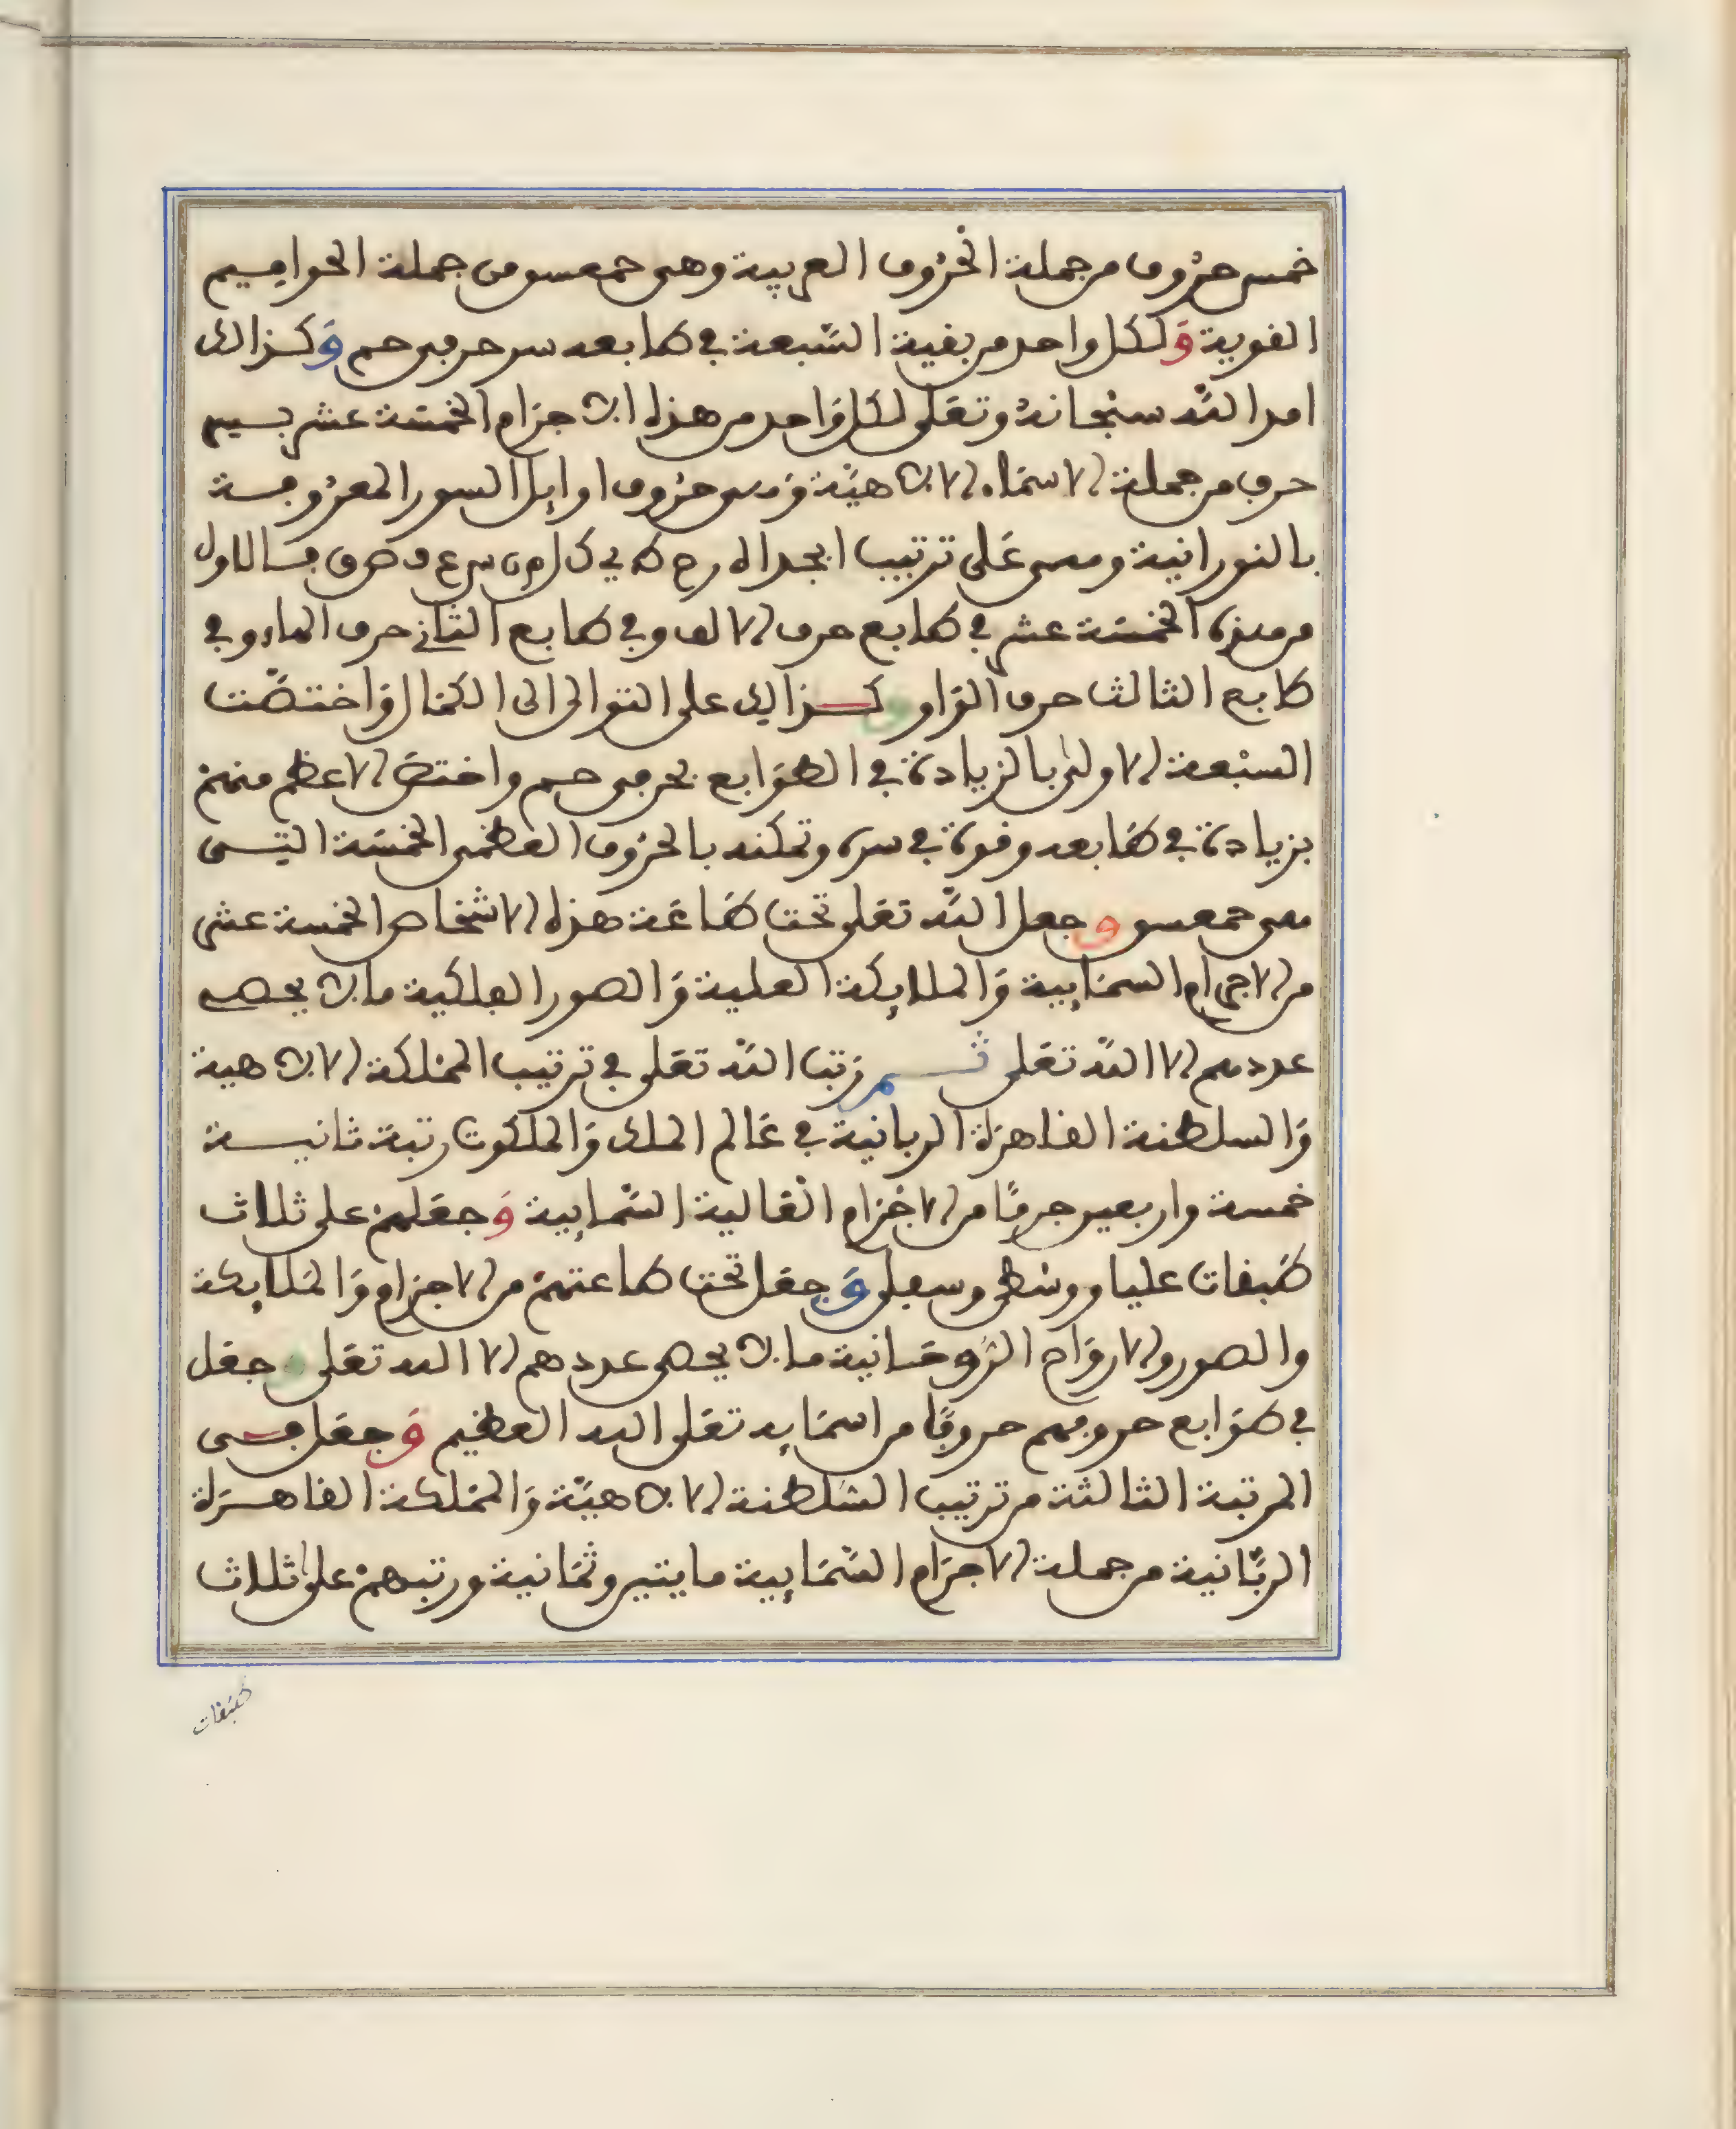 خمس حروف من جملة الحروف العربية وهي حمعسق من جملة الحواميم
القوية ولكل واحد من بقية السبعة في طابعه سر حرفي حم وكذالك
امد الله سبحانه وتعلى لكل واحد من هذه الاجرام الخمسة عشر بسر
حرف من جملة الاسماء الالاهية وهي حروف اوايل السور المعروفة
بالنورانية وهي على ترتيب ابجد ا ه و ح ط ي ك ل م ن س ع ص ق ر فالاول
من هذه الخمسة عشر في طابع حرف الالف وفي طابع الثاني حرف الهاء وفي
طابع الثالث حرف الواو وكذالك على التوالي الى الكمال واختصت
السبعة الاولى بالزيادة في الطوابع بحرفي حم واختص الاعظم منهن
بزيادة في طابعه وقوة في سره وتمكنه بالحروف العظمى الخمسة التي
هي حمعسق وجعل الله تعلى تحت طاعة هذه الاشخاص الخمسة عشر
من الاجرام السمايية والملايكة العلية والصور الفلكية ما لا يحصي
عددهم الا الله تعلى ثم رتب الله تعلى في ترتيب المملكة الالاهية
والسلطنة القاهرة الربانية في عالم الملك والملكوت رتبة ثانية
خمسة واربعين جرما من الاجرام العالية السمايية وجعلهن على ثلاث
طبقات عليا ووسطى وسفلى وجعل تحت طاعتهن من الاجرام والملايكة
والصور والارواح الروحانية ما لا يحصي عددهم الا الله تعلى وجعل
في طوابع حروفهم حروفا من اسمايه تعلى الله العظيم وجعل في
المرتبة الثالثة من ترتيب السلطنة الالاهية والمملكة القاهرة
الربانية من جملة الاجرام السمايية مايتين وثمانية ورتبهن على ثلاث
طبقات